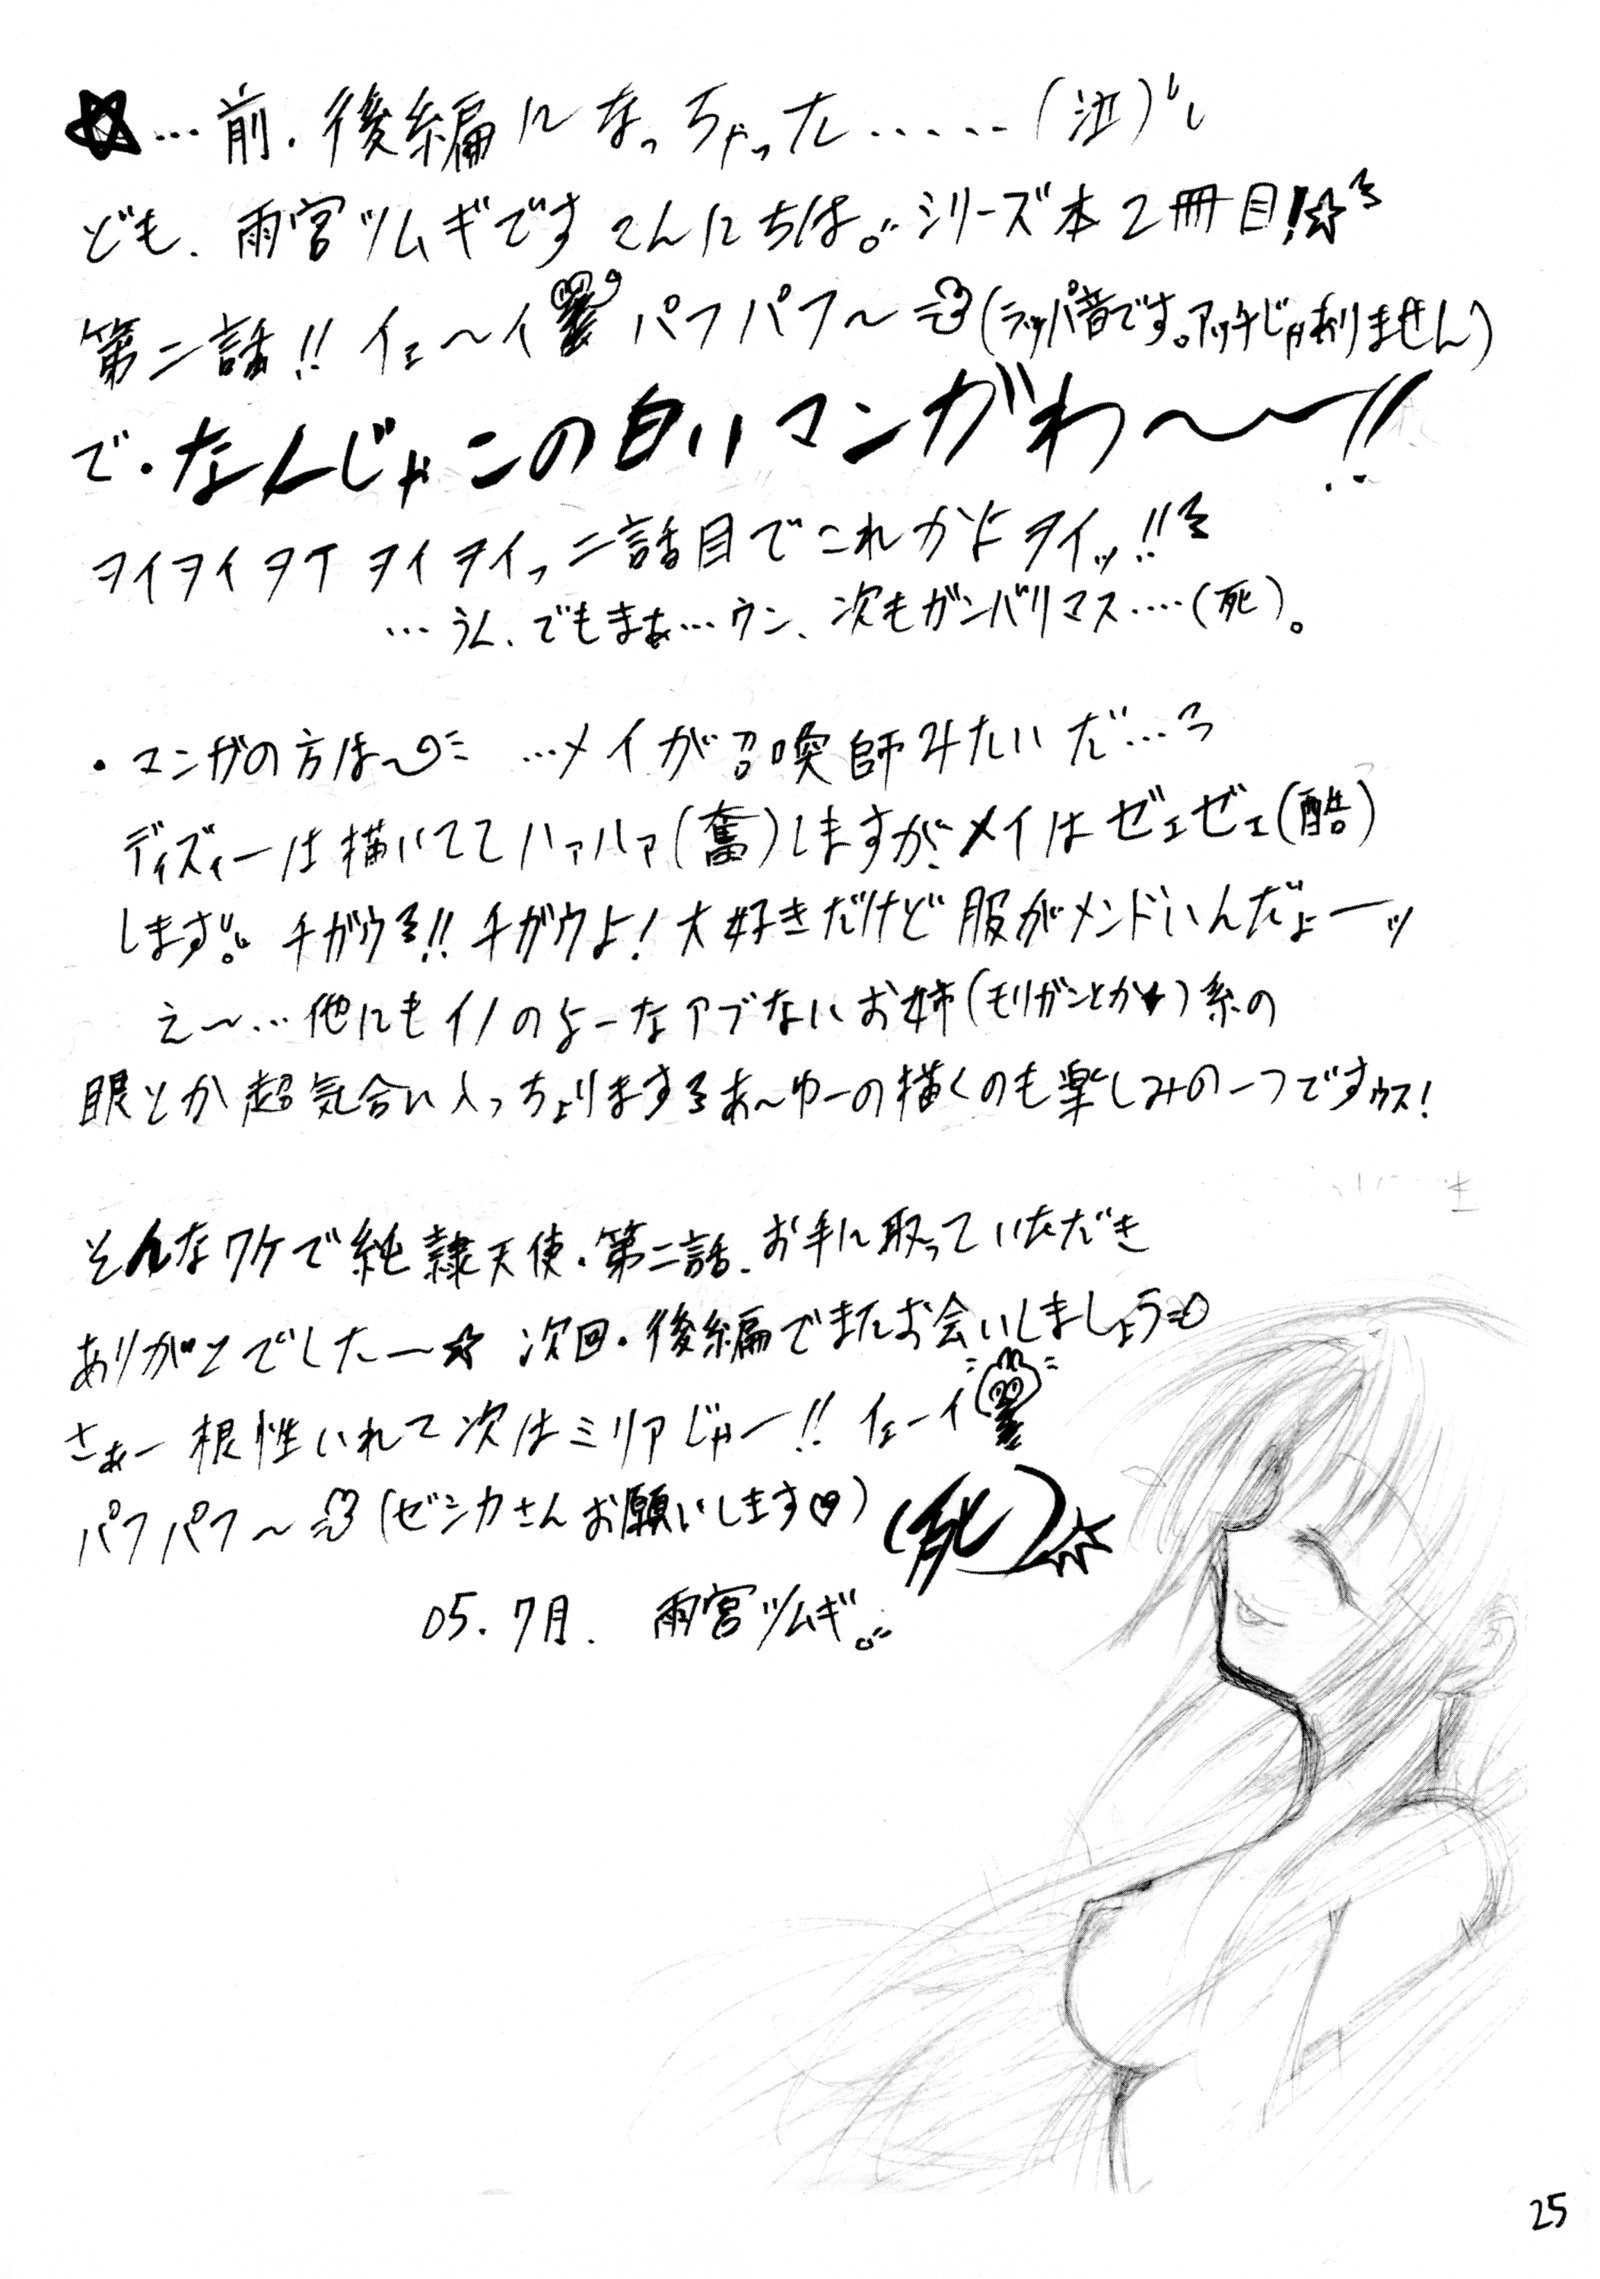 …前・後編になっちゃった……(泣)
ども、雨宮ツムギですこんにちは。シリーズ本2冊目!☆
第二話!!イェ〜イ パフパフ〜(ラッパ音です。アッチじゃありません)
で・なんじゃこの白いマンガわ〜〜!!
ヲイヲイヲイヲイヲイっ二話目でこれかよヲイッ!!
…うん、でもまぁ…ウン、次もガンバリマス….(死)。
・マンガの方は〜 …メイが召喚師みたいだ…
ディズィーは描いててハァハァ(奮)しますが、メイはゼェゼェ(酷)
します。チガウ!!チガウよ!大好きだけど服がメンドいんだょーッ
え〜…他にもイノのよーなアブないお姉(モリガンとか★)系の
眼とか超気合い入っちょりますあ〜ゆーの描くのも楽しみの一つですゥス!
そんなワケで純隷天使・第二話、お手に取っていただき
ありがとでしたー☆ 次回・後編でまたお会いしましょう
さぁー根性いれて次はミリアじゃー!!イェーイ
パフパフ〜(ゼシカさんお願いします♡)(死)
05.7月. 雨宮ツムギ。
25